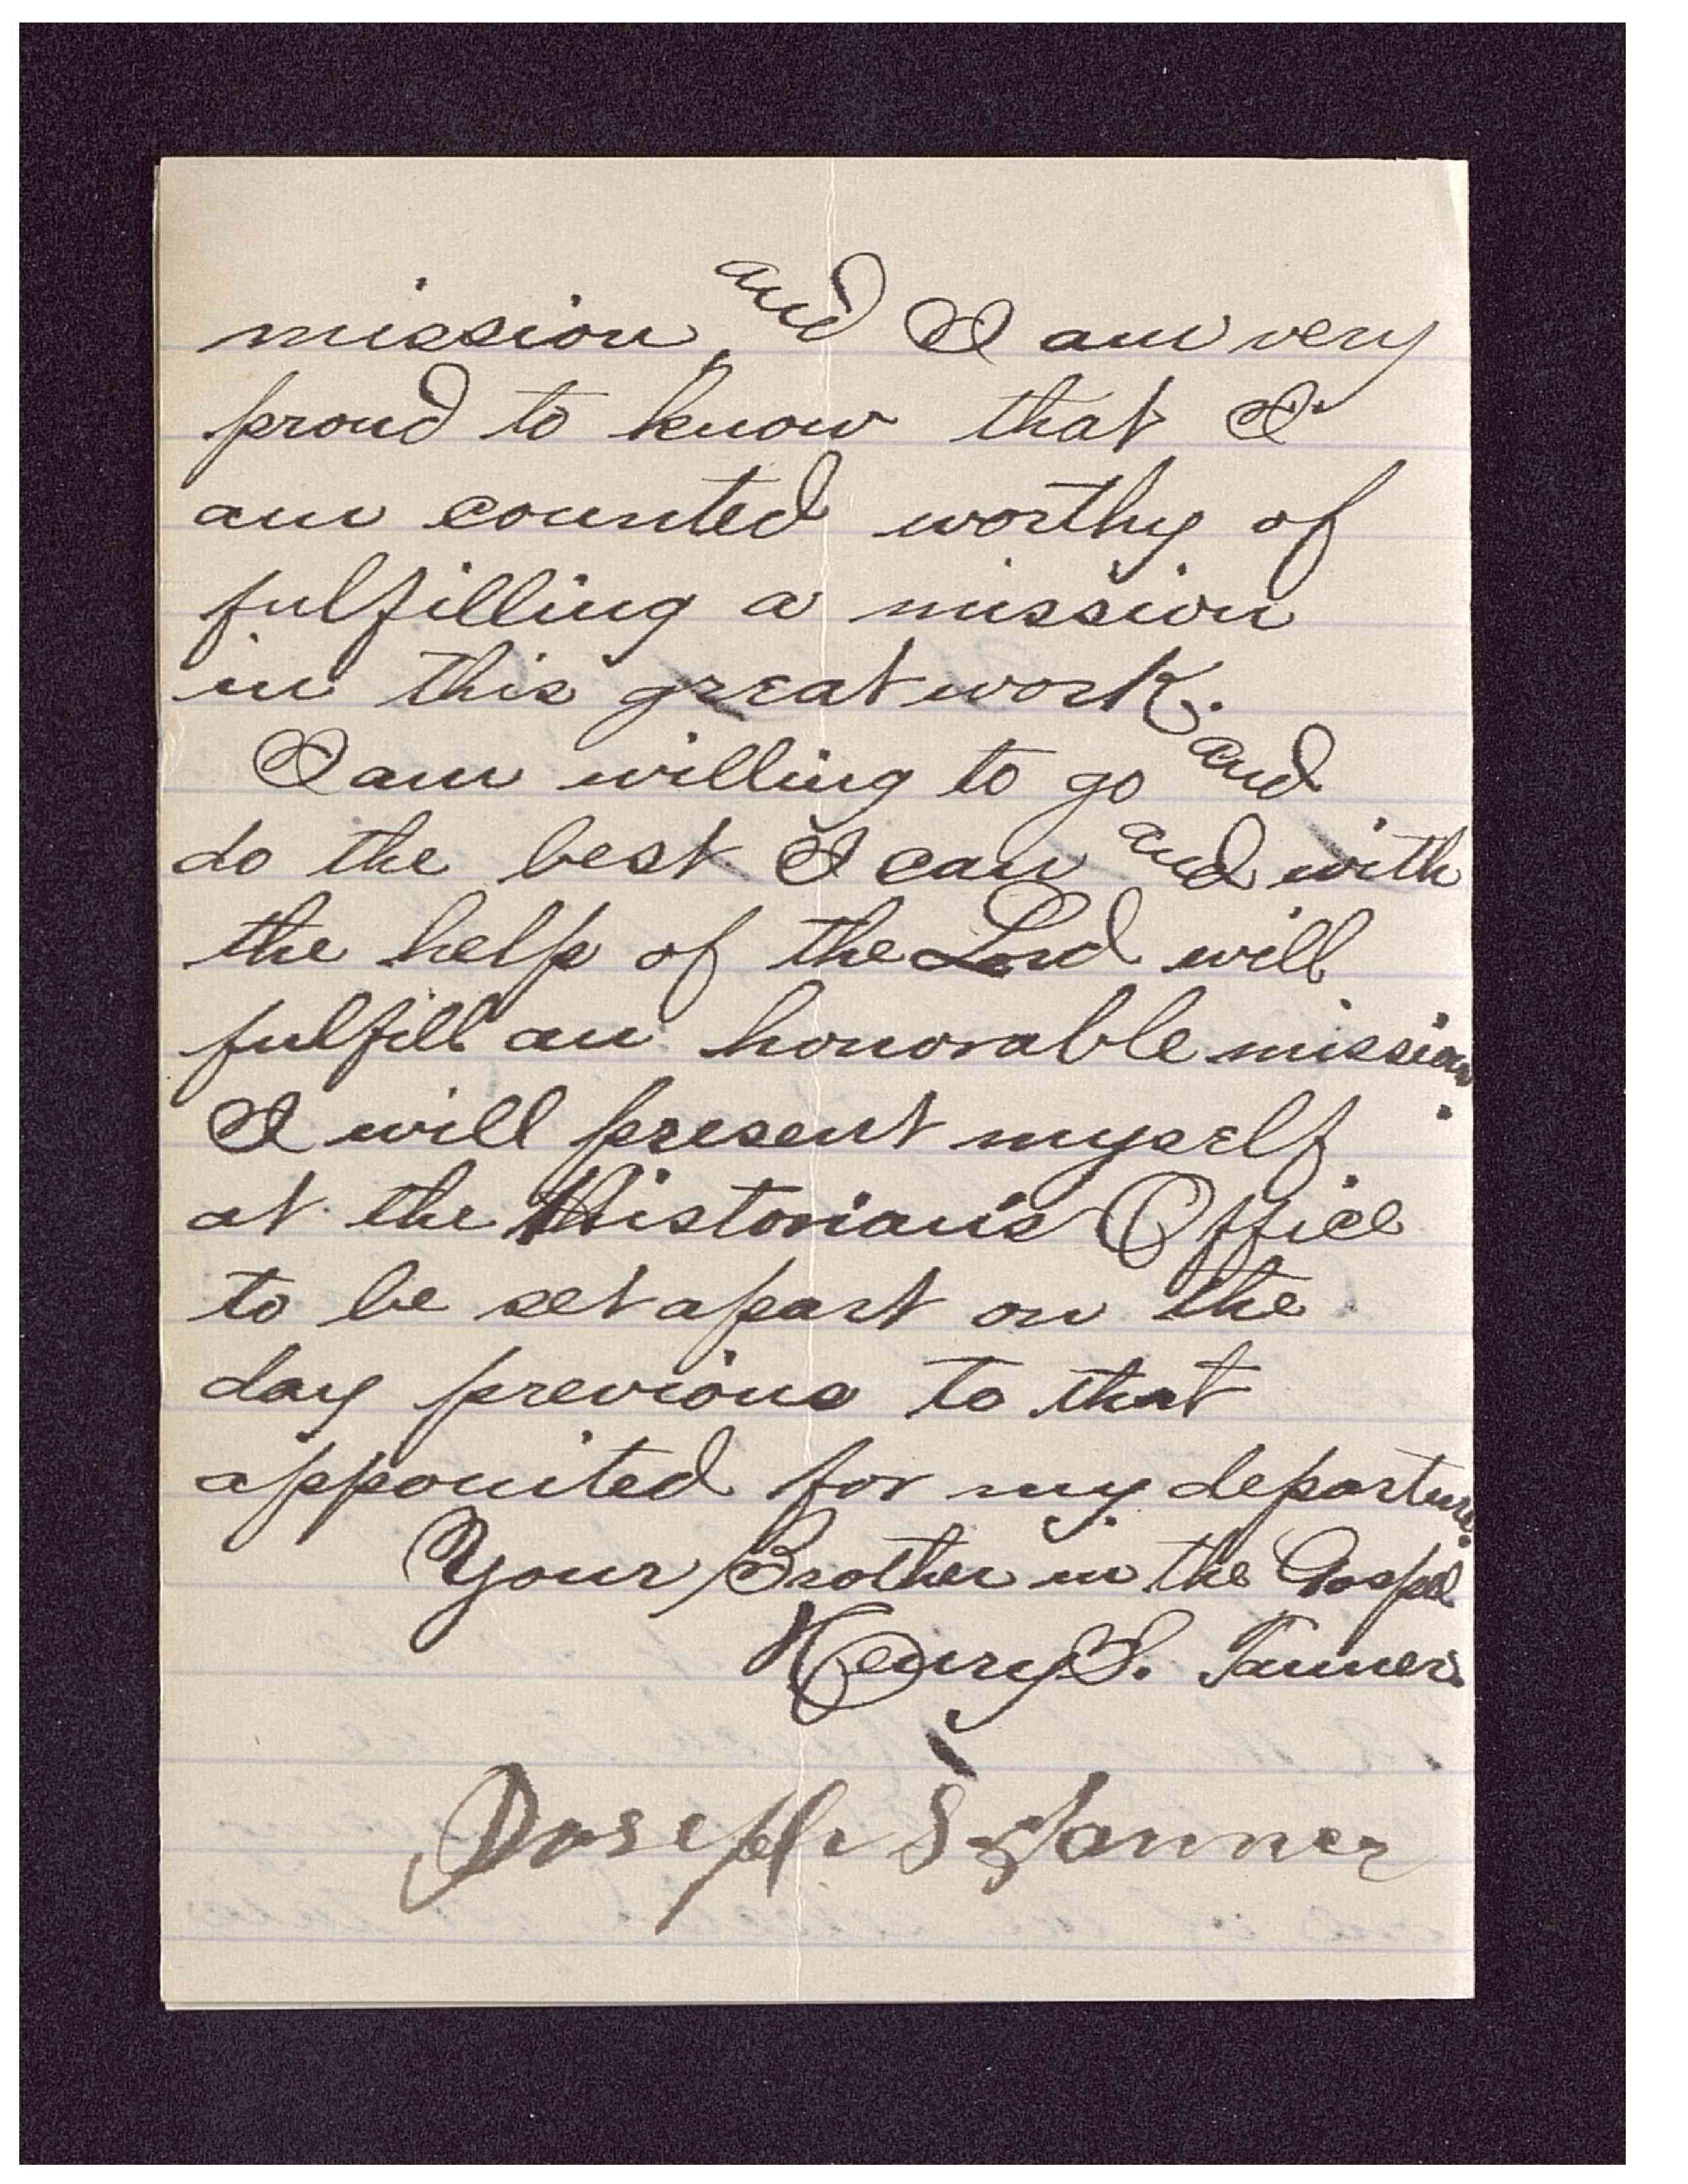 mission, and I am very
proud to know that I
am counted worthy of
fulfilling a mission
in this great work.
I am willing to go and
do the best I can and with
the help of the Lord will
fulfill an honorable mission.
I will present myself
at the Historian's Office
to be set apart on the
day previous to that
appointed for my departure.
Your Brother in the Gospel
Henry S. Tanner.
Joseph S Tanner